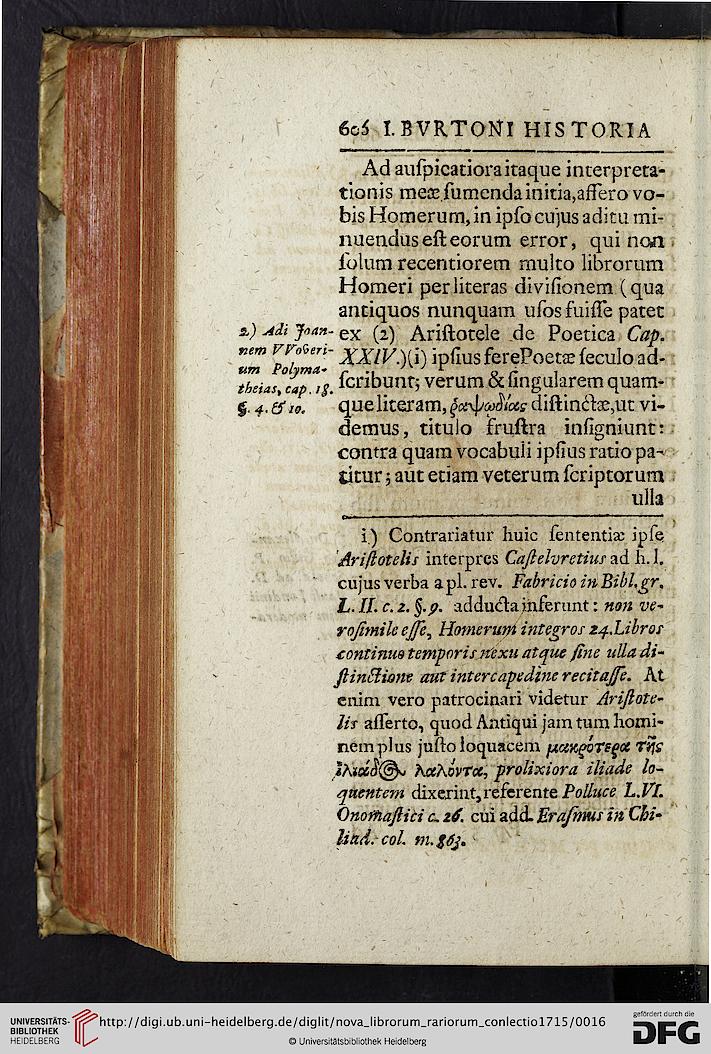 606 I. BVRTONI HISTORIA
Ad auſpicatiora itaque interpreta-
tionis meæ ſumenda initia, aſſero vo-
bis Homerum, in ipſo cujus aditu mi-
nuendus eſt eorum error, qui non
ſolum recentiorem multo librorum
Homeri per literas diviſionem (qua
antiquos nunquam uſos fuiſſe patet
ex (2) Ariſtotele de Poetica Cap.
XXIV.)(i) ipſius fere Poetæ ſeculo ad-
ſcribunt; verum & ſingularem quam-
que literam, ῥαψωδίας diſtinctæ, ut vi-
demus, titulo fruſtra inſigniunt:
contra quam vocabuli ipſius ratio pa-
titur; aut etiam veterum ſcriptorum
ulla
2) Adi Joan-
nem VVoveri-
um Polyma-
theias, cap. 18.
§. 4. & 10.
i) Contrariatur huic ſententiæ ipſe
Ariſtotelis interpres Caſtelvretius ad h. l.
cujus verba a pl. rev. Fabricio in Bibl. gr.
L. II. c. 2. §. 9. adducta inferunt: non ve-
roſimile eſſe, Homerum integros 24. Libros
continuo temporis nexu atque ſine ulla di-
ſtinctione aut intercapedine recitaſſe. At
enim vero patrocinari videtur Ariſtote-
lis aſſerto, quod Antiqui jam tum homi-
nem plus juſto loquacem μακρότερα τῆς
ἰλιάδος λαλόντα, prolixiora iliade lo-
quentem dixerint, referente Polluce L. VI.
Onomaſtici c. 26. cui add. Eraſmus in Chi-
liad. col. m. 863.
UNIVERSITÄTS-
BIBLIOTHEK
HEIDELBERG
http://digi.ub.uni-heidelberg.de/diglit/nova_librorum_rariorum_conlectio1715/0016
© Universitätsbibliothek Heidelberg
gefördert durch die
DFG